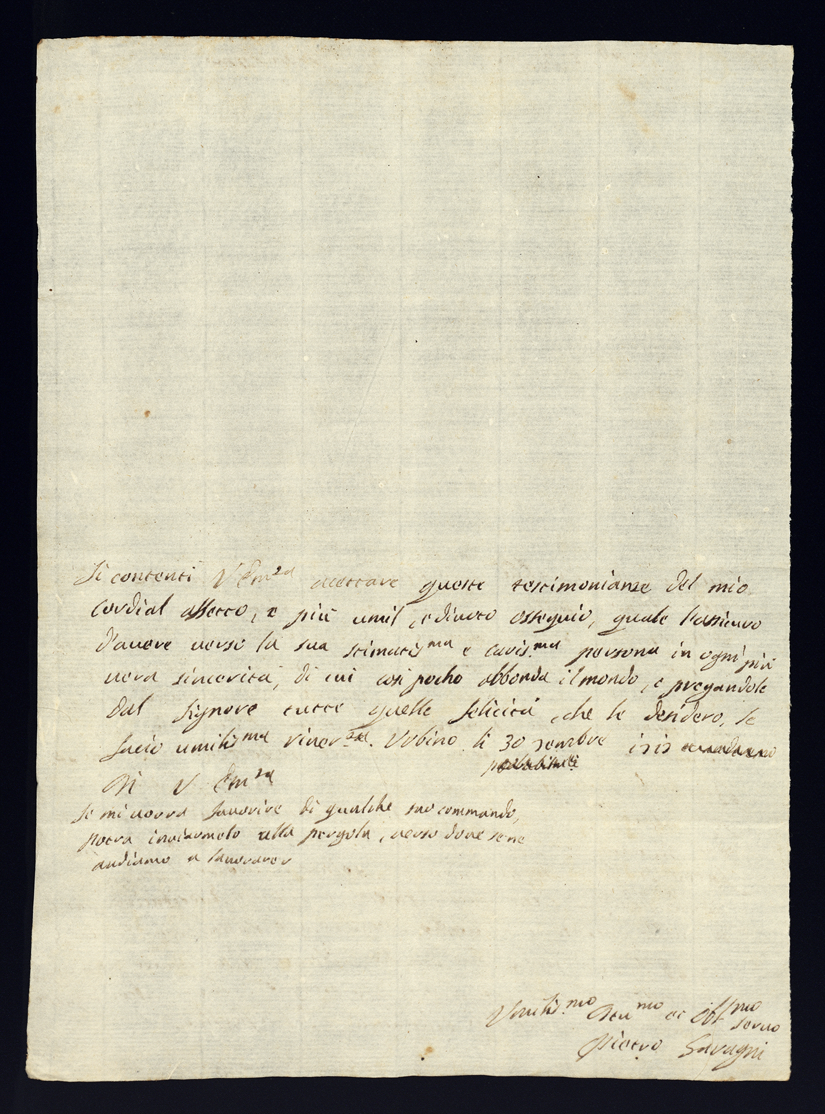 Si contenti V Em.za accettare queste testimonianze del mio
cordial affetto, e più umil, e divoto ossequio, quale l'assicuro
d'avere verso la sua stimatis.ma e caris.ma persona in ogni più
vera sincerità, di cui così pocho abbonda il mondo, e pregandole
dal Signore tutte quelle felicità, che le desidero, le
facio umilis.ma river.za. Urbino li 30
Di V Em.za
Se mi vorrà favorire di qualche suo commando,
potrà inviarmelo alla pergola, verso dove
andiamo a
Umilis.mo Deu.mo et Obb.mo
servo
Pietro Savagni